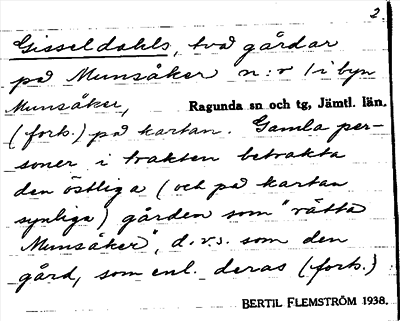 2.
Gisseldahls, två gårdar
på Munsåker n:r 1 i byn
Munsåker, Ragunda sn och tg, Jämtl. län.
(forts.) på kartan. Gamla per-
soner i trakten betrakta
den östliga (och på kartan
synliga) gården som "rätta
Munsåker", d.v.s. som den
gård, som enl. deras (forts.)
BERTIL FLEMSTRÖM 1938.